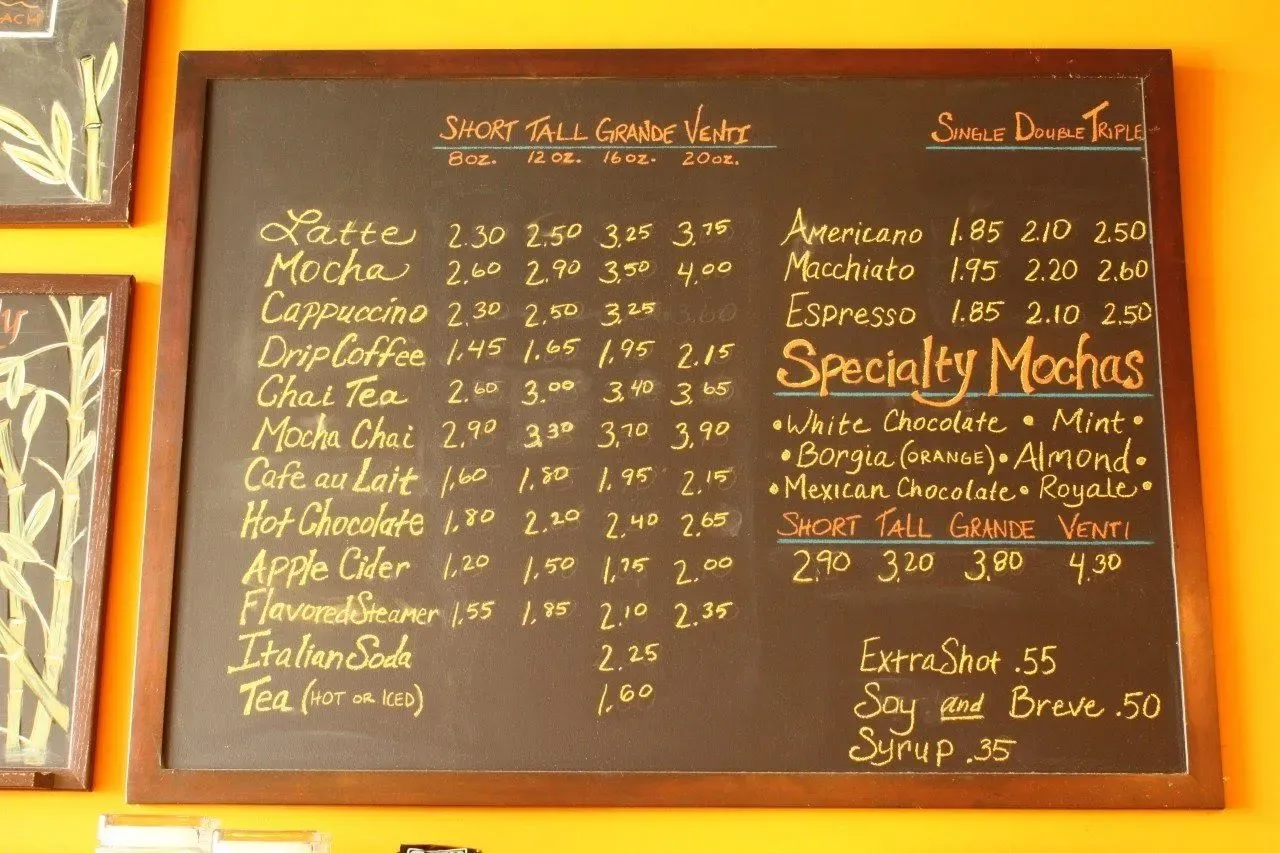 ACH
ly
SHORT TALL GRANDE VENTI
8 oz. 12 oz. 16 oz. 20 oz.
Latte 2.30 2.50 3.25 3.75
Mocha 2.60 2.90 3.50 4.00
Cappuccino 2.30 2.50 3.25
Drip Coffee 1.45 1.65 1.95 2.15
Chai Tea 2.60 3.00 3.40 3.65
Mocha Chai 2.90 3.30 3.70 3.90
Cafe au Lait 1.60 1.80 1.95 2.15
Hot Chocolate 1.80 2.20 2.40 2.65
Apple Cider 1.20 1.50 1.75 2.00
Flavored Steamer 1.55 1.85 2.10 2.35
Italian Soda 2.25
Tea (HOT OR ICED) 1.60
SINGLE DOUBLE TRIPLE
Americano 1.85 2.10 2.50
Macchiato 1.95 2.20 2.60
Espresso 1.85 2.10 2.50
Specialty Mochas
• White Chocolate • Mint •
• Borgia (ORANGE) • Almond •
• Mexican Chocolate • Royale •
SHORT TALL GRANDE VENTI
2.90 3.20 3.80 4.30
Extra Shot .55
Soy and Breve .50
Syrup .35